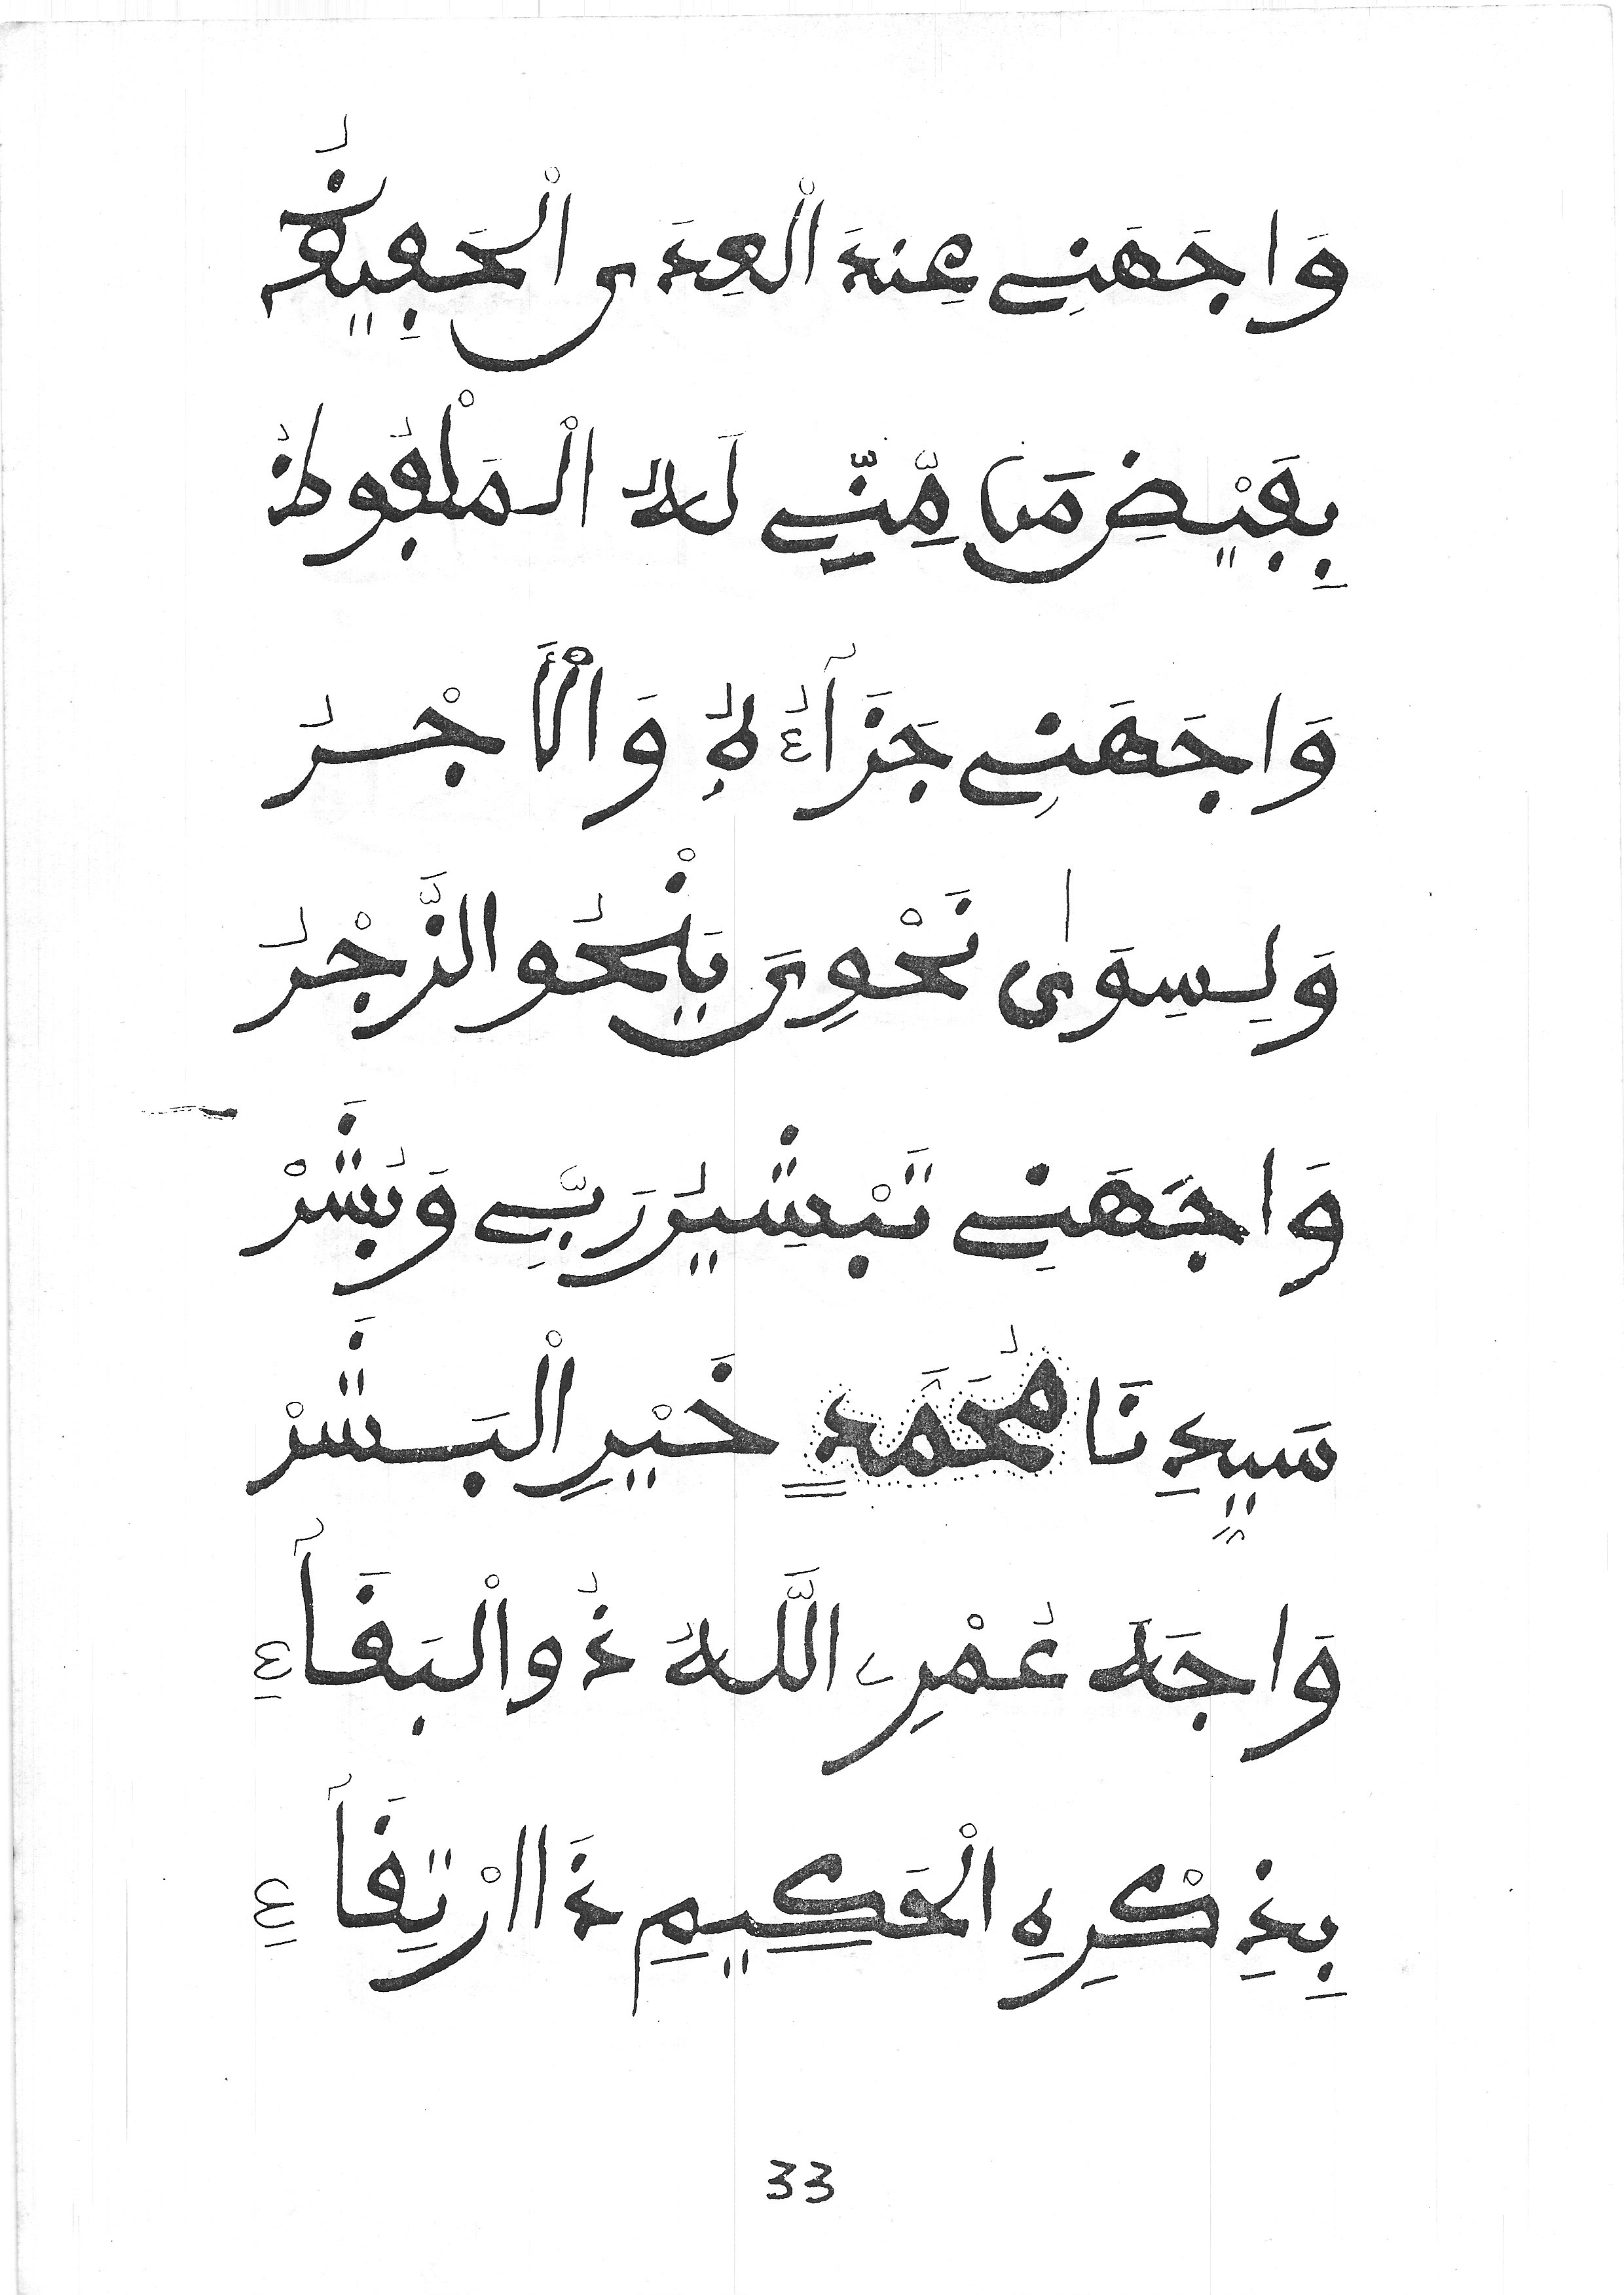 وَاجَهَنِي عِنْدَ الْعِدَى الْحَفِيظُ
بِفَيْضِ مَنٍّ مِّنِّي لَهُ الْمَلْفُوظُ
وَاجَهَنِي جَزَآءُهُ وَالْأَجْرُ
وَلِسِوَىٰ نَحْوِيَ يَنْحُو الزَّجْرُ
وَاجَهَنِي تَبْشِيرُ رَبِّي وَبَشَّرْ
سَيِّدِنَا مُحَمَّدٍ خَيْرِ الْبَشَرْ
وَاجَهَ عُمْرِي اللَّهُ ذُو الْبَقَآءِ
بِذِكْرِهِ الْحَكِيمِ ذَا ارْتِقَآءِ
33